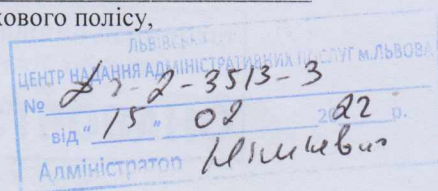 кового полісу,
ЛЬВІВСЬКА
ЦЕНТР НАДАННЯ АДМІНІСТРАТИВНИХ ПОСЛУГ м.ЛЬВОВА
№ -2-3513-3
від " 15 " 02 2022 р.
Адміністратор